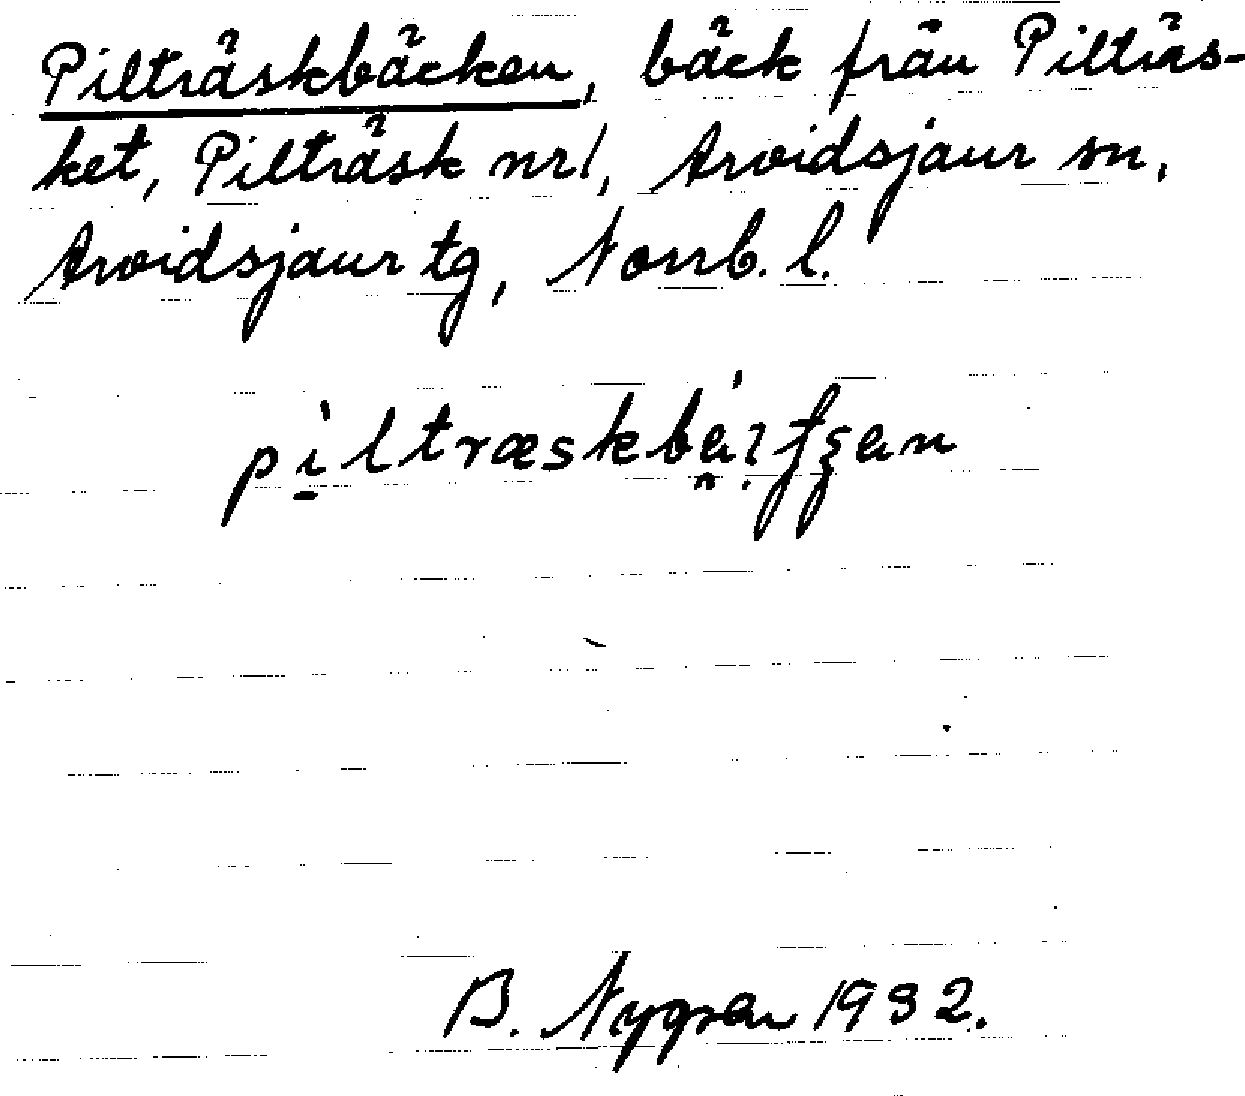 Pilträskbäcken, bäck från Pilträs-
ket, Pilträsk nr 1, Arvidsjaur sn,
Arvidsjaur tg, Norrb. l.
B. Nygren 1932.